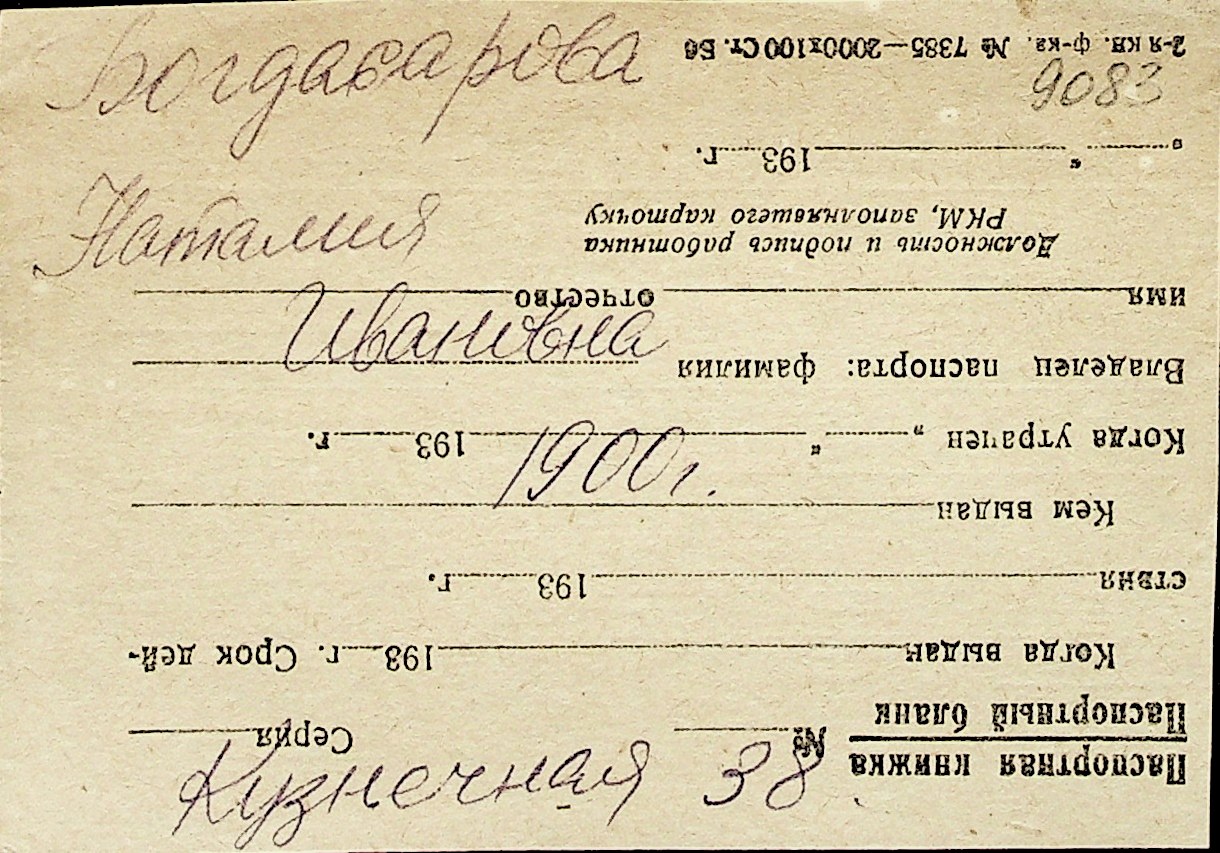 Богдасарова
9083
Наталия
Ивановна
1900 г.
Кузнечная 38.
Паспортная книжка
Паспортный бланк
№ Серия
Когда выдан 193 г. Срок дей-
ствия 193 г.
Кем выдан
Когда утрачен „ “ 193 г.
Владелец паспорта: фамилия
имя отчество
Должность и подпись работника
РКМ, заполнявшего карточку
„ “ 193 г.
2-я кв. ф-ка. № 7385—2000х100 Ст. Бб